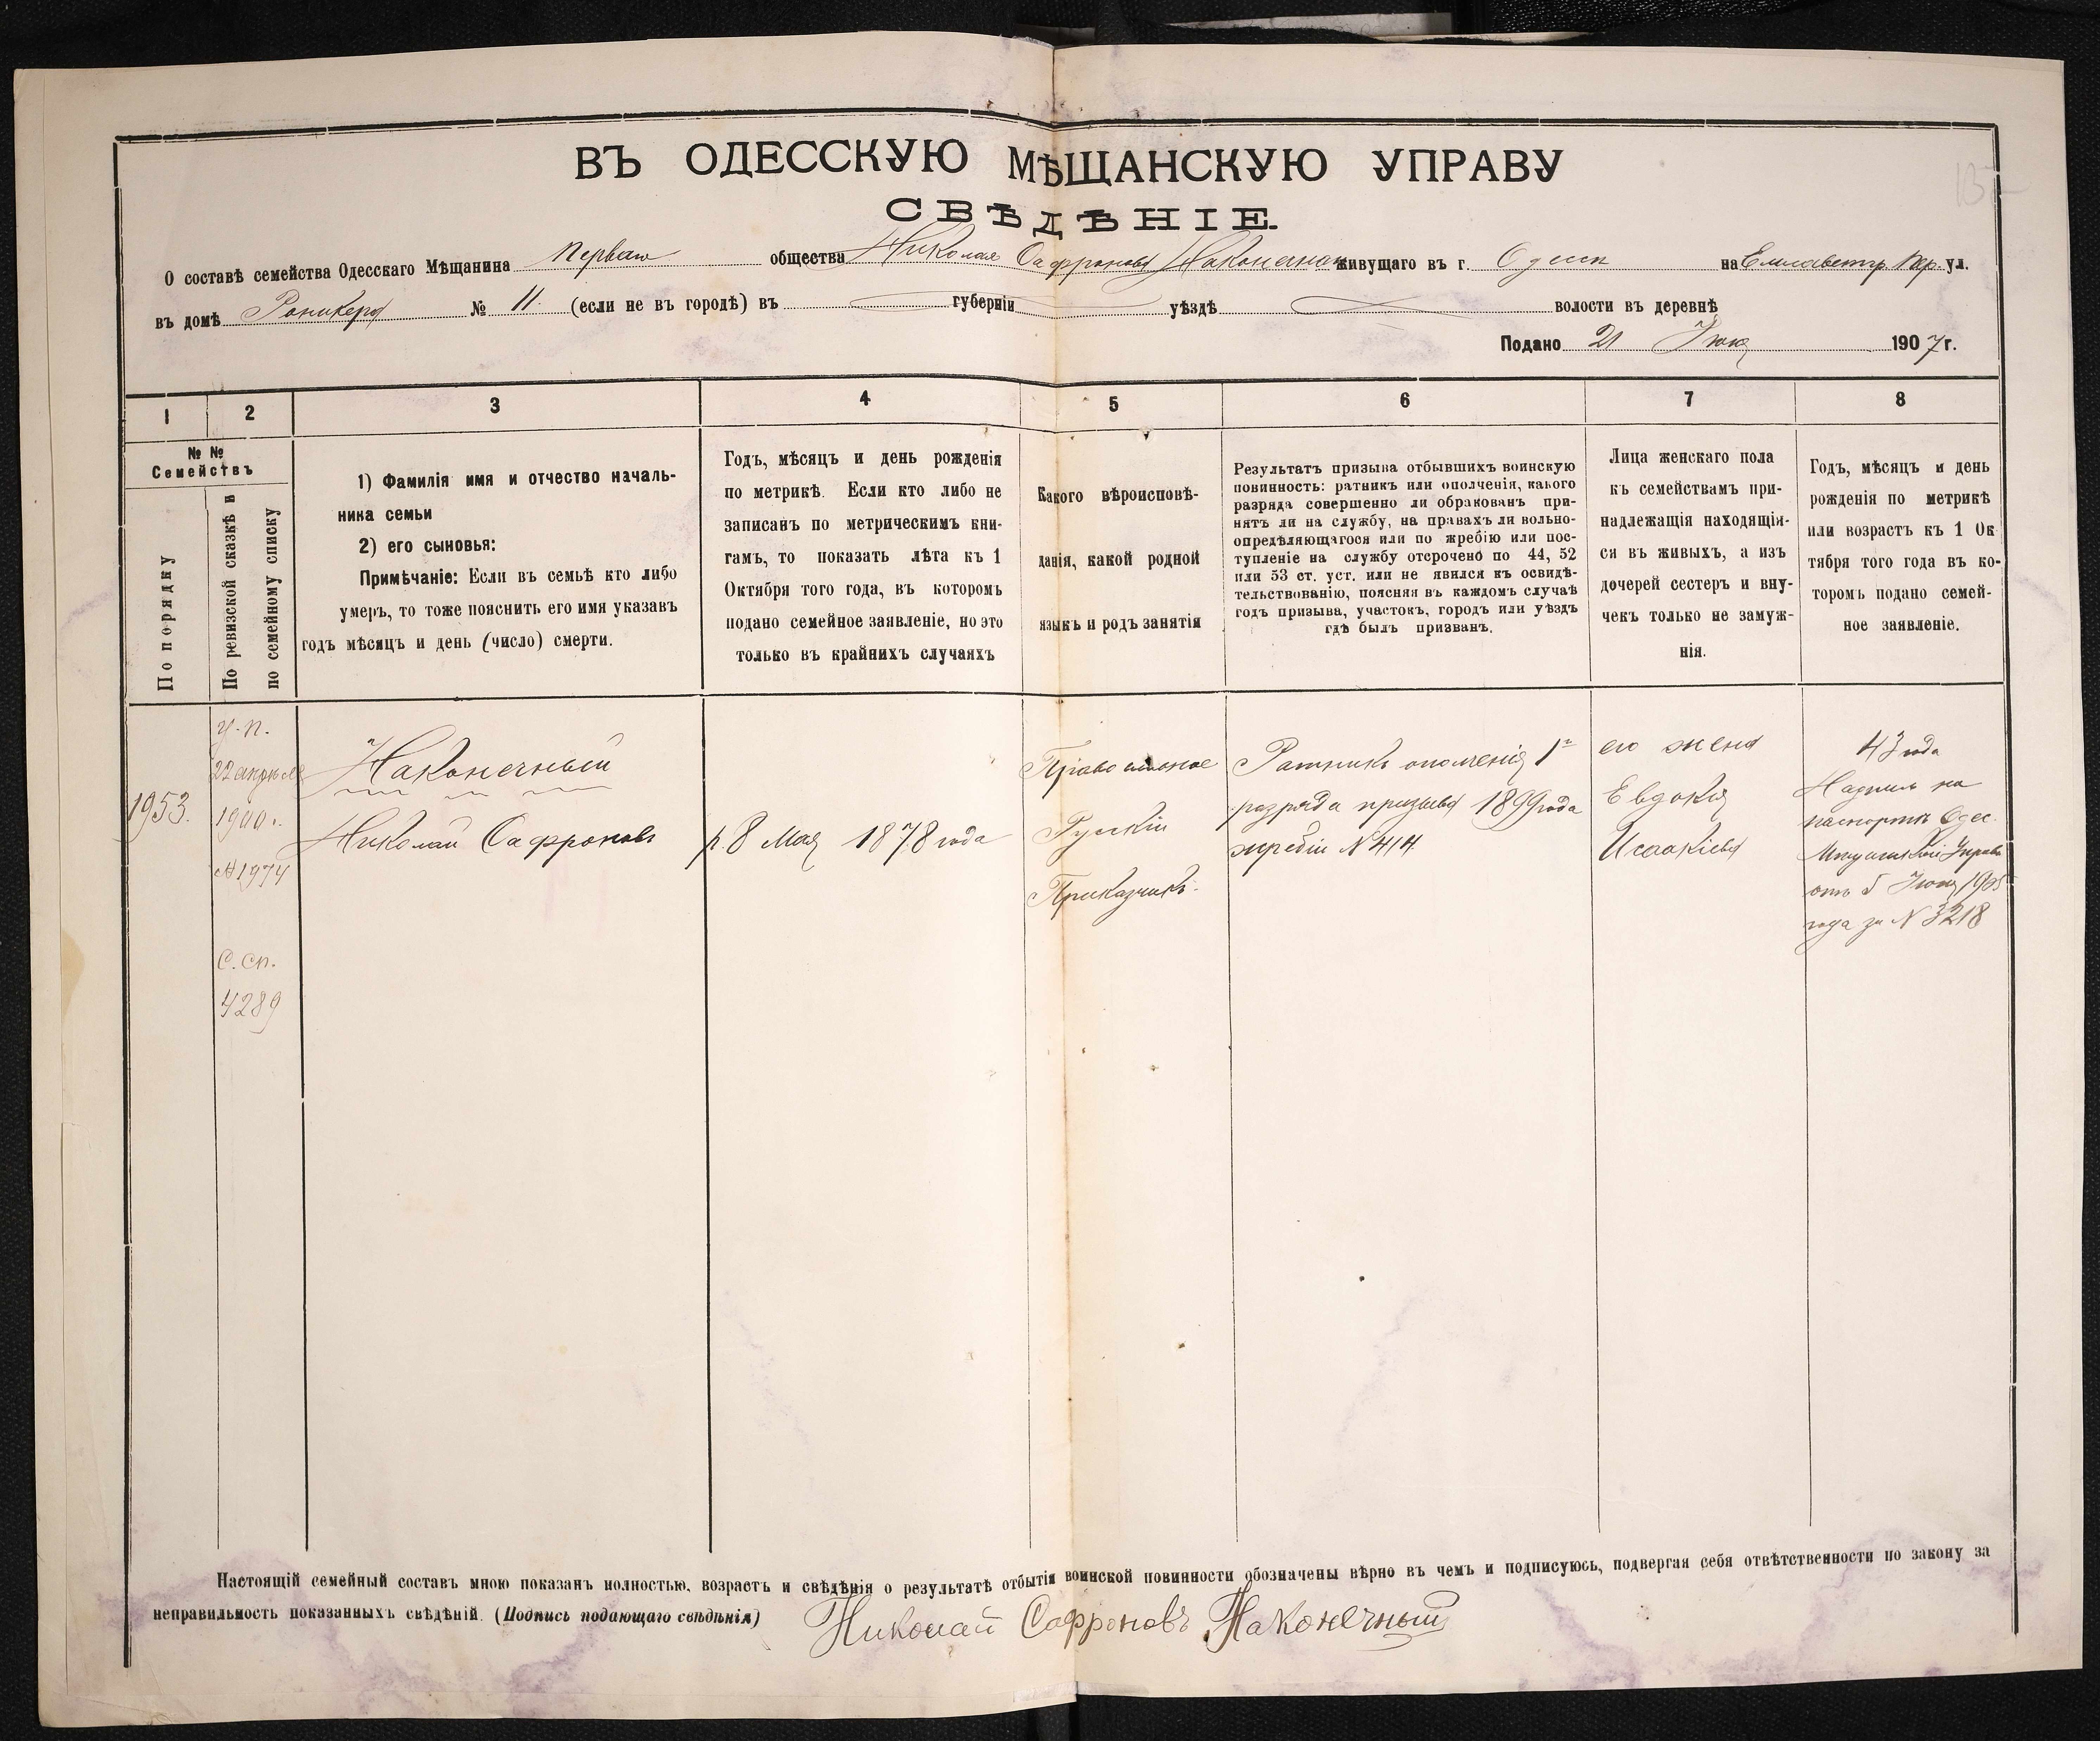 ВЪ ОДЕССКУЮ МѢЩАНСКУЮ УПРАВУ
СВѢДѢНІЕ.
О составѣ семейства Одесскаго Мѣщанина перваго общества Николая Сафронова Наконечнаго живущаго въ г. Одессѣ на Елисаветгр. пер. ул.
въ домѣ № 11. (если не въ городѣ) въ губерніи уѣздѣ волости въ деревнѣ
Подано 21 1907 г.
1 2 3 4 5 6 7 8
№ №
Семействъ
По порядку
По ревизской сказкѣ и
по семейному списку
1) Фамилія имя и отчество началь-
ника семьи
2) его сыновья:
Примѣчаніе: Если въ семьѣ кто либо
умеръ, то тоже пояснить его имя указавъ
годъ мѣсяцъ и день (число) смерти.
Годъ, мѣсяцъ и день рожденія
по метрикѣ. Если кто либо не
записанъ по метрическимъ кни-
гамъ, то показать лѣта къ 1
Октября того года, въ которомъ
подано семейное заявленіе, но это
только въ крайнихъ случаяхъ
Какого вѣроисповѣ-
данія, какой родной
языкъ и родъ занятія
Результатъ призыва отбывшихъ воинскую
повинность: ратникъ или ополченія, какого
разряда совершенно ли обракованъ при-
нятъ ли на службу, на правахъ ли вольно-
опредѣляющагося или по жребію или пос-
тупленіе на службу отсрочено по 44, 52
или 53 ст. уст. или не явился къ освидѣ-
тельствованію, поясняя въ каждомъ случаѣ
годъ призыва, участокъ, городъ или уѣздъ
гдѣ былъ призванъ.
Лица женскаго пола
къ семействамъ при-
надлежащія находящія-
ся въ живыхъ, а изъ
дочерей сестеръ и вну-
чекъ только не замуж-
нія.
Годъ, мѣсяцъ и день
рожденія по метрикѣ
или возрастъ къ 1 Ок-
тября того года въ ко-
торомъ подано семей-
ное заявленіе.
1953.
у. п.
22 апрѣля
1900 г.
№ 1974
с. сп.
4289
Наконечный
Николай Сафроновъ
р. 8 Мая 1878 года
Православное
Русскій
Приказчикъ.
Ратникъ ополченія 1
разряда призыва 1899 года
жребій № 414
его жена
Евдокія
Исаакіева
43 года
Надпись на
паспортѣ Одес.
Мѣщанской Управы
отъ 5 1905
года за № 3218
Настоящій семейный составъ мною показанъ полностью, возрастъ и свѣдѣнія о результатѣ отбытія воинской повинности обозначены вѣрно въ чемъ и подписуюсь, подвергая себя отвѣтственности по закону за
неправильность показанныхъ свѣдѣній. (Подпись подающаго свѣдѣнія) Николай Сафроновъ Наконечный